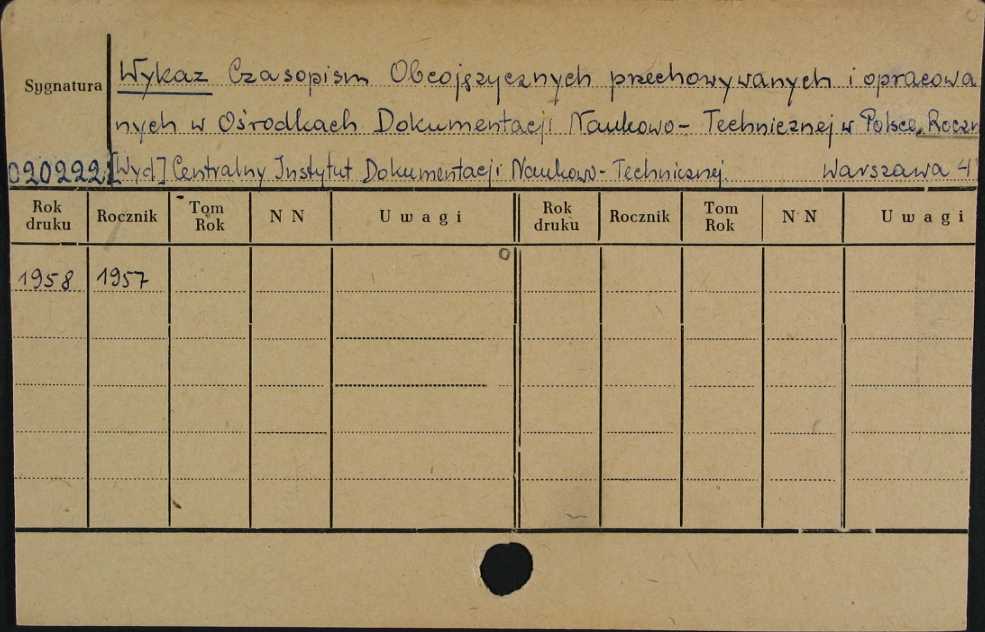 Wykaz Czasopism Obcojęzycznych przechowywanych i opracowa
Sygnatura
nych w Ośrodkach Dokumentacji Naukowo-Technicznej w Polsce. Roczn
020222 [Wyd] Centralny Instytut Dokumentacji Naukowo-Technicznej. Warszawa 4
Rok druku Rocznik Tom Rok N N Uwagi Rok druku Rocznik Tom Rok N N Uwagi
1958 1957